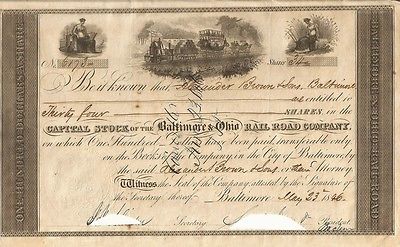 No. 6193 Shares 34
Be it known that Alexander Brown & Sons, Baltimore
are entitled to
Thirty four SHARES, IN THE
CAPITAL STOCK of the Baltimore & Ohio RAIL ROAD COMPANY,
on which One Hundred Dollars have been paid, transferable only
on the Books of the Company, in the City of Baltimore, by
the said Alexander Brown & Sons or their Attorney.
Witness the Seal of the Company, attested by the Signature of
the Secretary thereof. Baltimore May 23d 1846
Secretary President
ONE HUNDRED DOLLARS A SHARE
ONE HUNDRED DOLLARS A SHARE